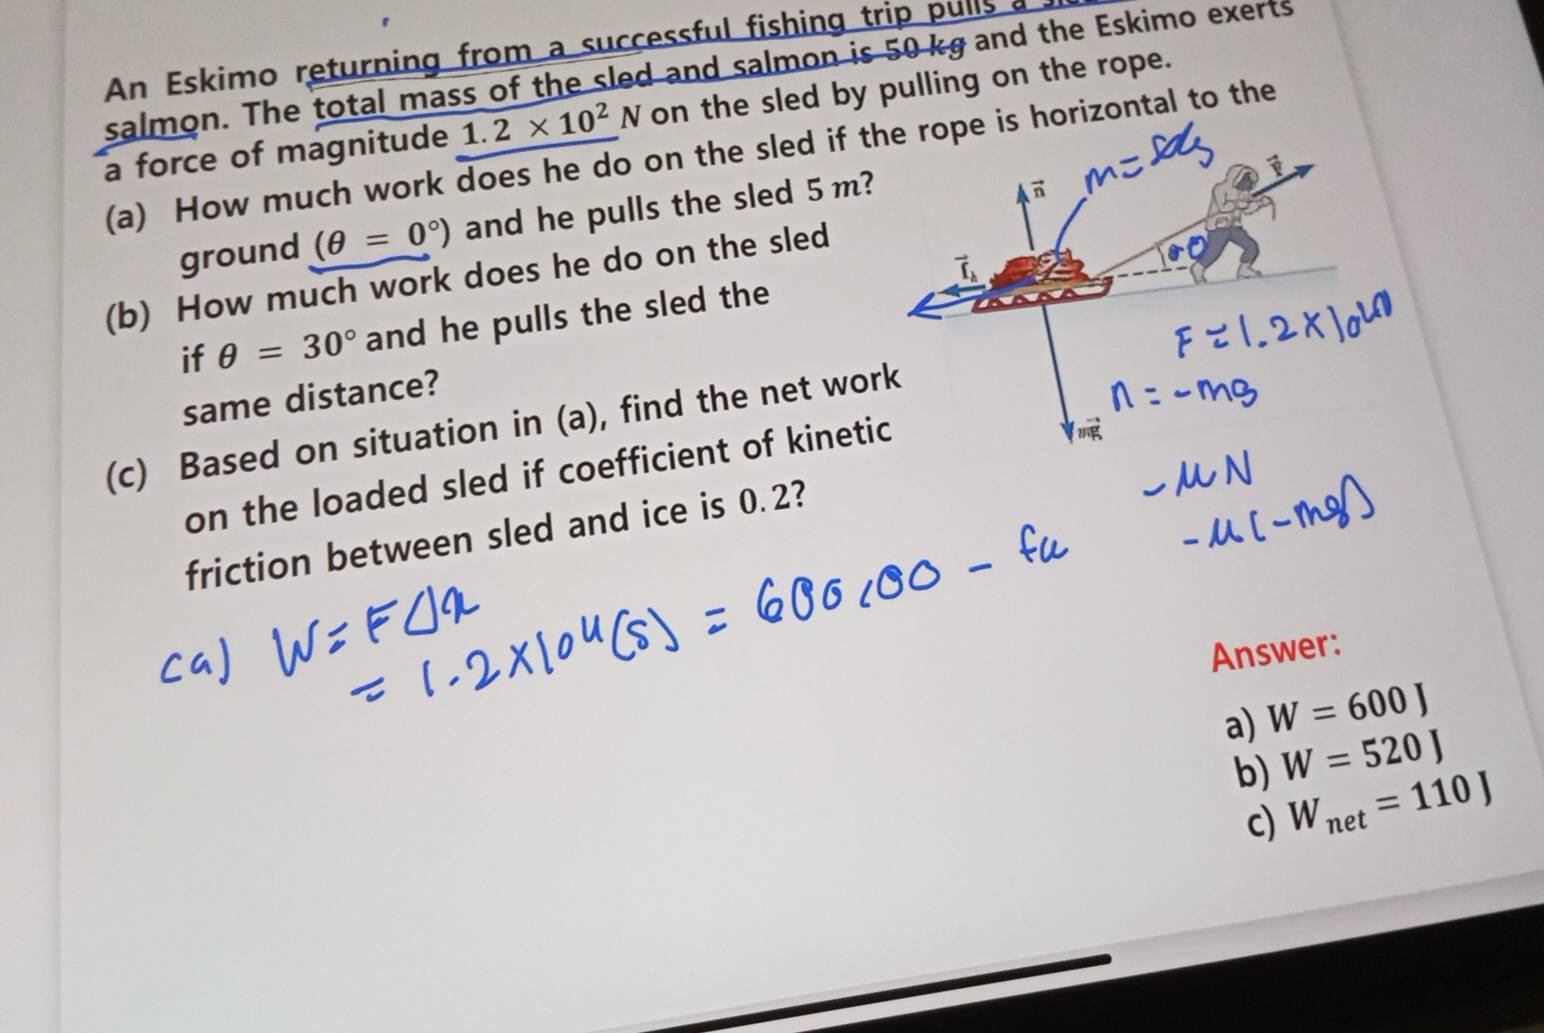 An Eskimo returning from a successful fishing trip pulls a
salmon. The total mass of the sled and salmon is 50 kg and the Eskimo exerts
a force of magnitude 1.2 × 10² N on the sled by pulling on the rope.
(a) How much work does he do on the sled if the rope is horizontal to the
ground (θ = 0°) and he pulls the sled 5 m?
(b) How much work does he do on the sled
if θ = 30° and he pulls the sled the
same distance?
(c) Based on situation in (a), find the net work
on the loaded sled if coefficient of kinetic
friction between sled and ice is 0.2?
n⃗
m =
F⃗
f⃗ₖ
mg⃗
F = 1.2 × 10
n = -mg
-μN
-μ(-mg)
(a) W = FΔx
= 1.2×10⁴(5) = 600,00 - fk
Answer:
a) W = 600 J
b) W = 520 J
c) W net = 110 J